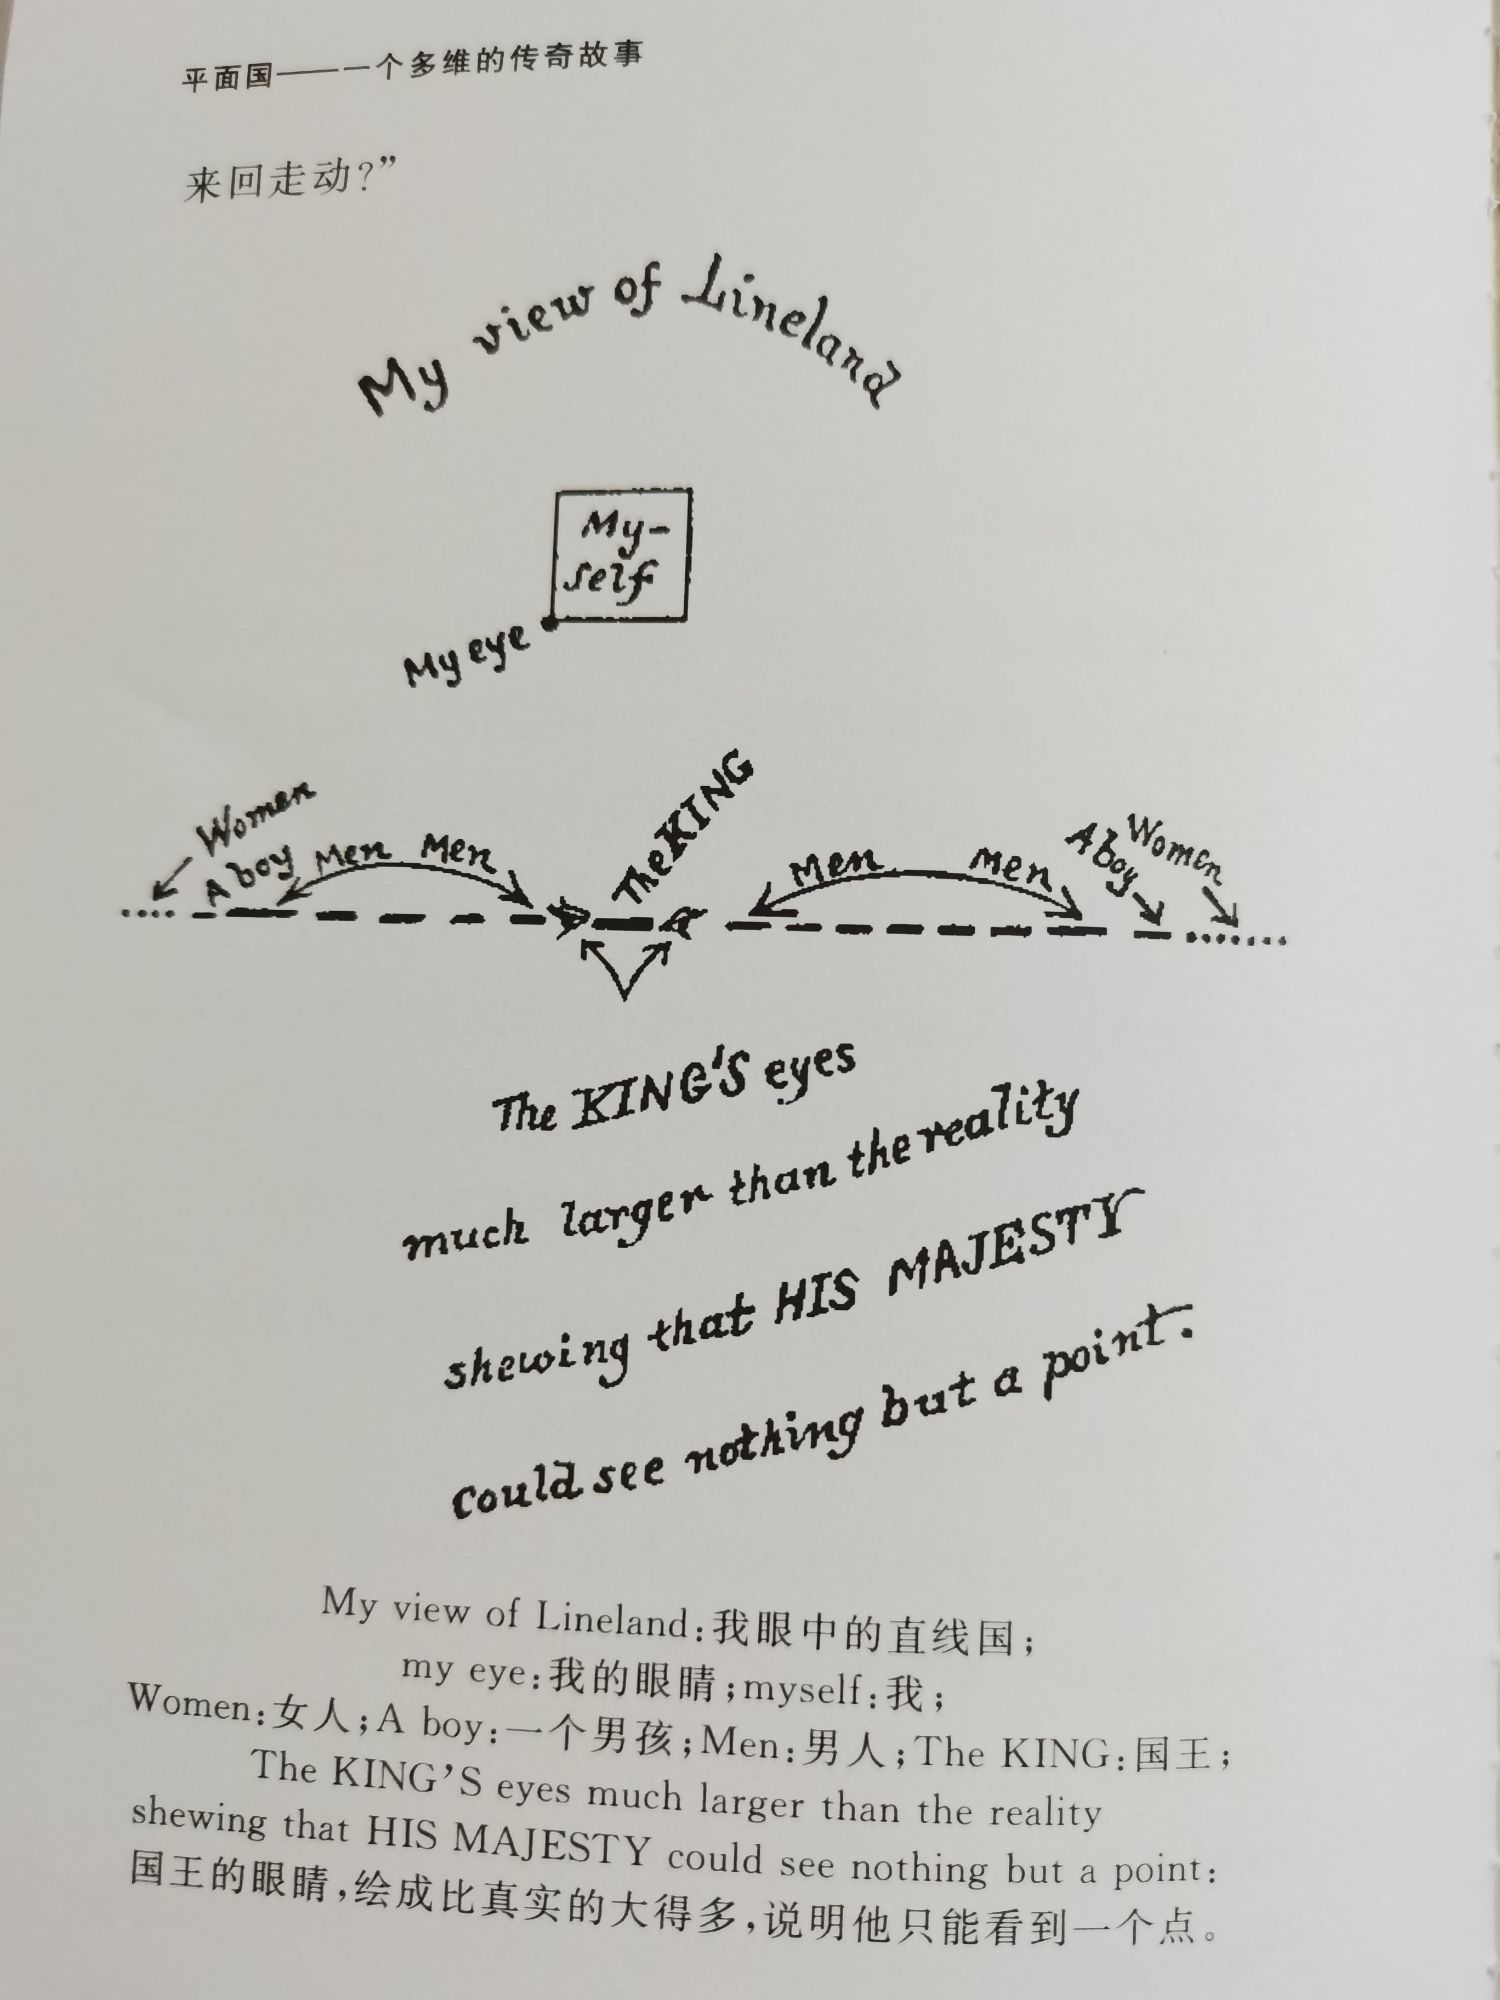 平面国——一个多维的传奇故事
来回走动?”
My view of Lineland
My-
self
My eye
The KING
Women
A boy
Men
Men
Men
Men
A boy
Women
The KING'S eyes
much larger than the reality
shewing that HIS MAJESTY
could see nothing but a point.
My view of Lineland:我眼中的直线国;
my eye:我的眼睛;myself:我;
Women:女人;A boy:一个男孩;Men:男人;The KING:国王;
The KING’S eyes much larger than the reality
shewing that HIS MAJESTY could see nothing but a point:
国王的眼睛,绘成比真实的大得多,说明他只能看到一个点。